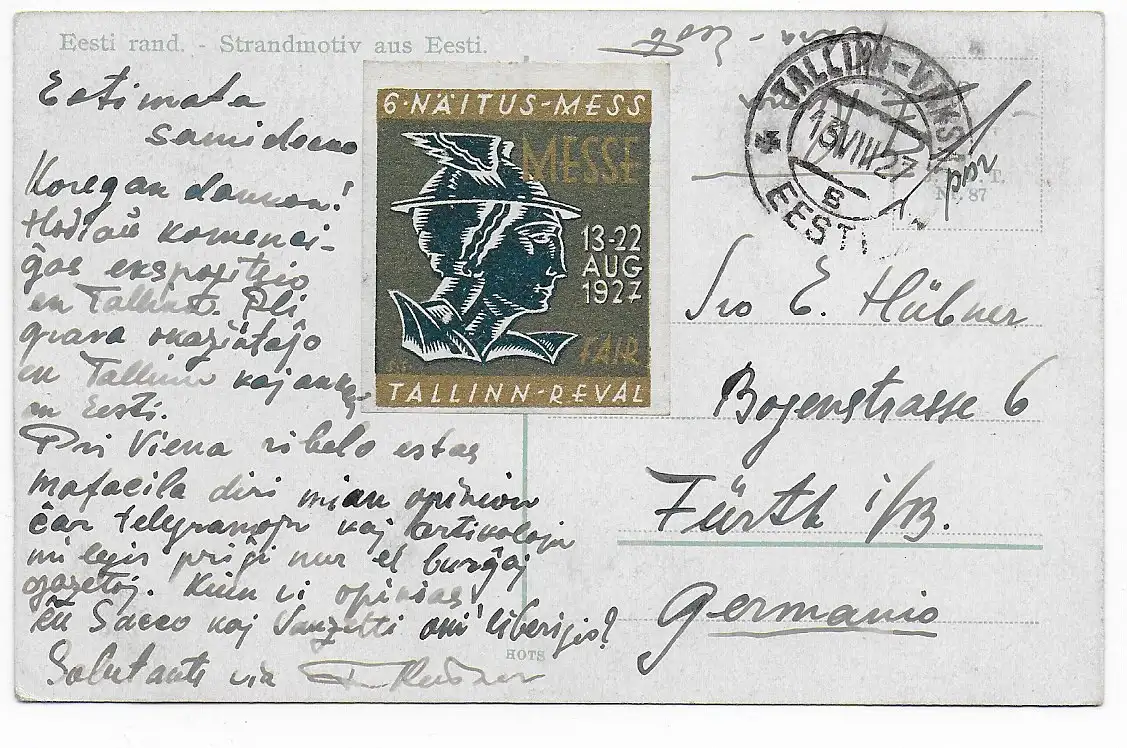 Eesti rand. - Strandmotiv aus Eesti.
Estimata
samideano
Koregan dankon!
Hodiaŭ komenci-
ĝas ekspozicio
en Tallinn. Pli
grava okazintaĵo
en Tallinn kaj ankaŭ
en Eesti.
Pri Viena ribelo estas
mafacila diri mian opinion
ĉar telegramojn kaj artikolojn
mi legis pri ĝi nur el burĝaj
gazetoj. Kion vi opinias
ĉu Sacco kaj Vanzetti oni liberigis?
Salutante via
HOTS
6·NÄITUS-MESS
MESSE
13-22
AUG
1927
FAIR
TALLINN-REVAL
TALLINN-VAKSAL
13 VIII 27
B
EESTI
Nr. 87
Sro E. Hübner
Bogenstrasse 6
Fürth i/B.
Germanio